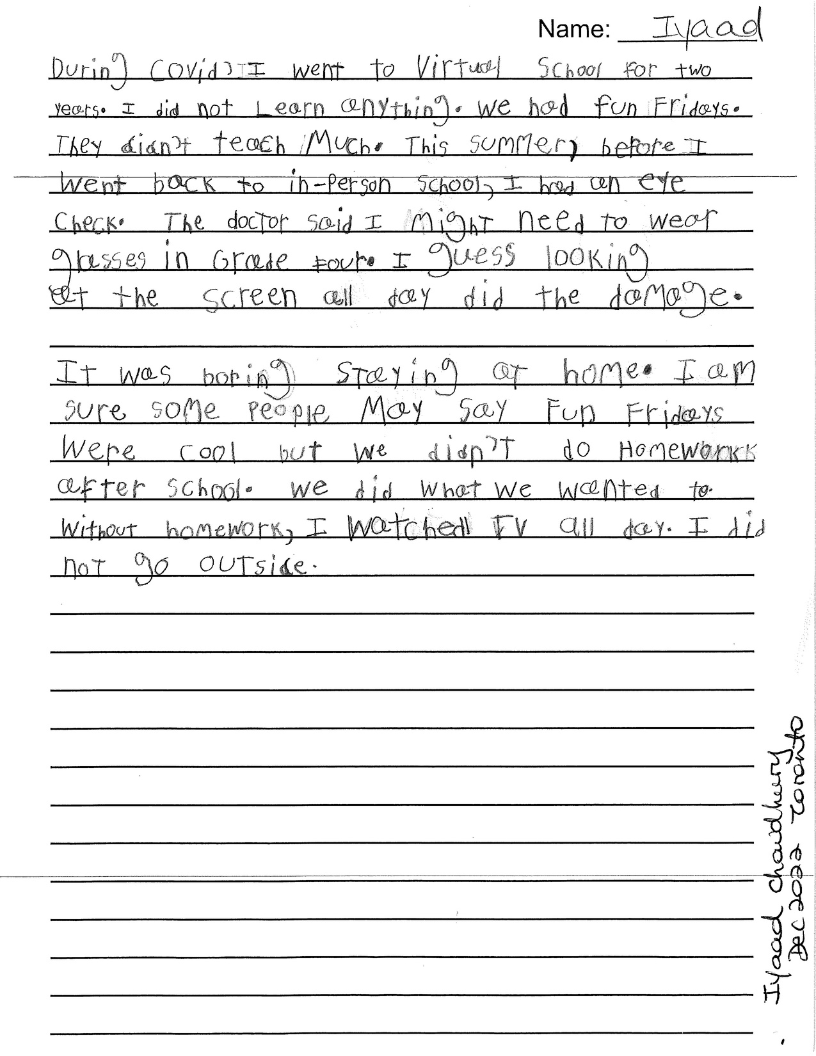 Name: Iyaad
During Covid, I went to Virtual School for two
years. I did not Learn anything. We had fun Fridays.
They didn't teach Much. This summer, before I
went back to in-Person School, I had an eye
check. The doctor said I might need to wear
glasses in Grade four. I guess looking
at the screen all day did the damage.
It was boring Staying at home. I am
sure some people May Say Fun Fridays
Were cool but we didn't do Homework
after school. We did what we wanted to.
Without homework, I watched TV all day. I did
not go outside.
Iyaad Chowdhury
Dec 2022 Toronto